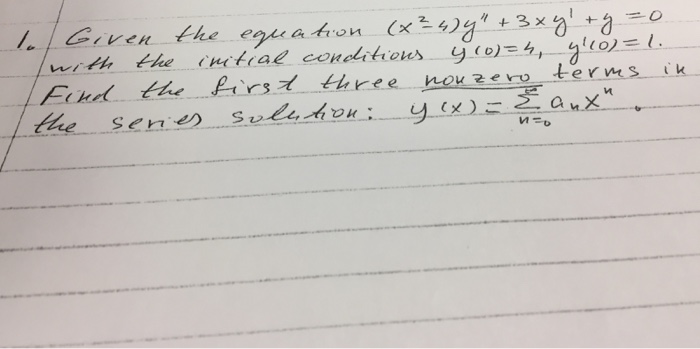 1. Given the equation (x²-4)y" + 3xy' + y = 0
with the initial conditions y(0)=4, y'(0)=1.
Find the first three nonzero terms in
the series solution: y(x) = ∞Σn=0 aₙxⁿ.